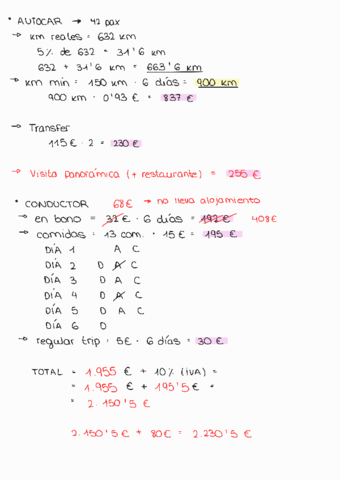 • AUTOCAR → 42 pax
→ km reales = 632 km
5% de 632 = 31'6 km
632 + 31'6 km = 663'6 km
→ km mín = 150 km · 6 días = 900 km
900 km · 0'93 € = 837 €
→ Transfer
115 € · 2 = 230 €
→ Visita panorámica (+ restaurante) = 255 €
• CONDUCTOR 68€ → no lleva alojamiento
→ en bono = 32 € · 6 días = 192 € 408€
→ comidas = 13 com. · 15 € = 195 €
DÍA 1 A C
DÍA 2 D A C
DÍA 3 D A C
DÍA 4 D A C
DÍA 5 D A C
DÍA 6 D
→ regular trip = 5€ · 6 días = 30 €
TOTAL = 1.955 € + 10% (IVA) =
= 1.955 € + 195'5 € =
= 2.150'5 €
2.150'5 € + 80€ = 2.230'5 €